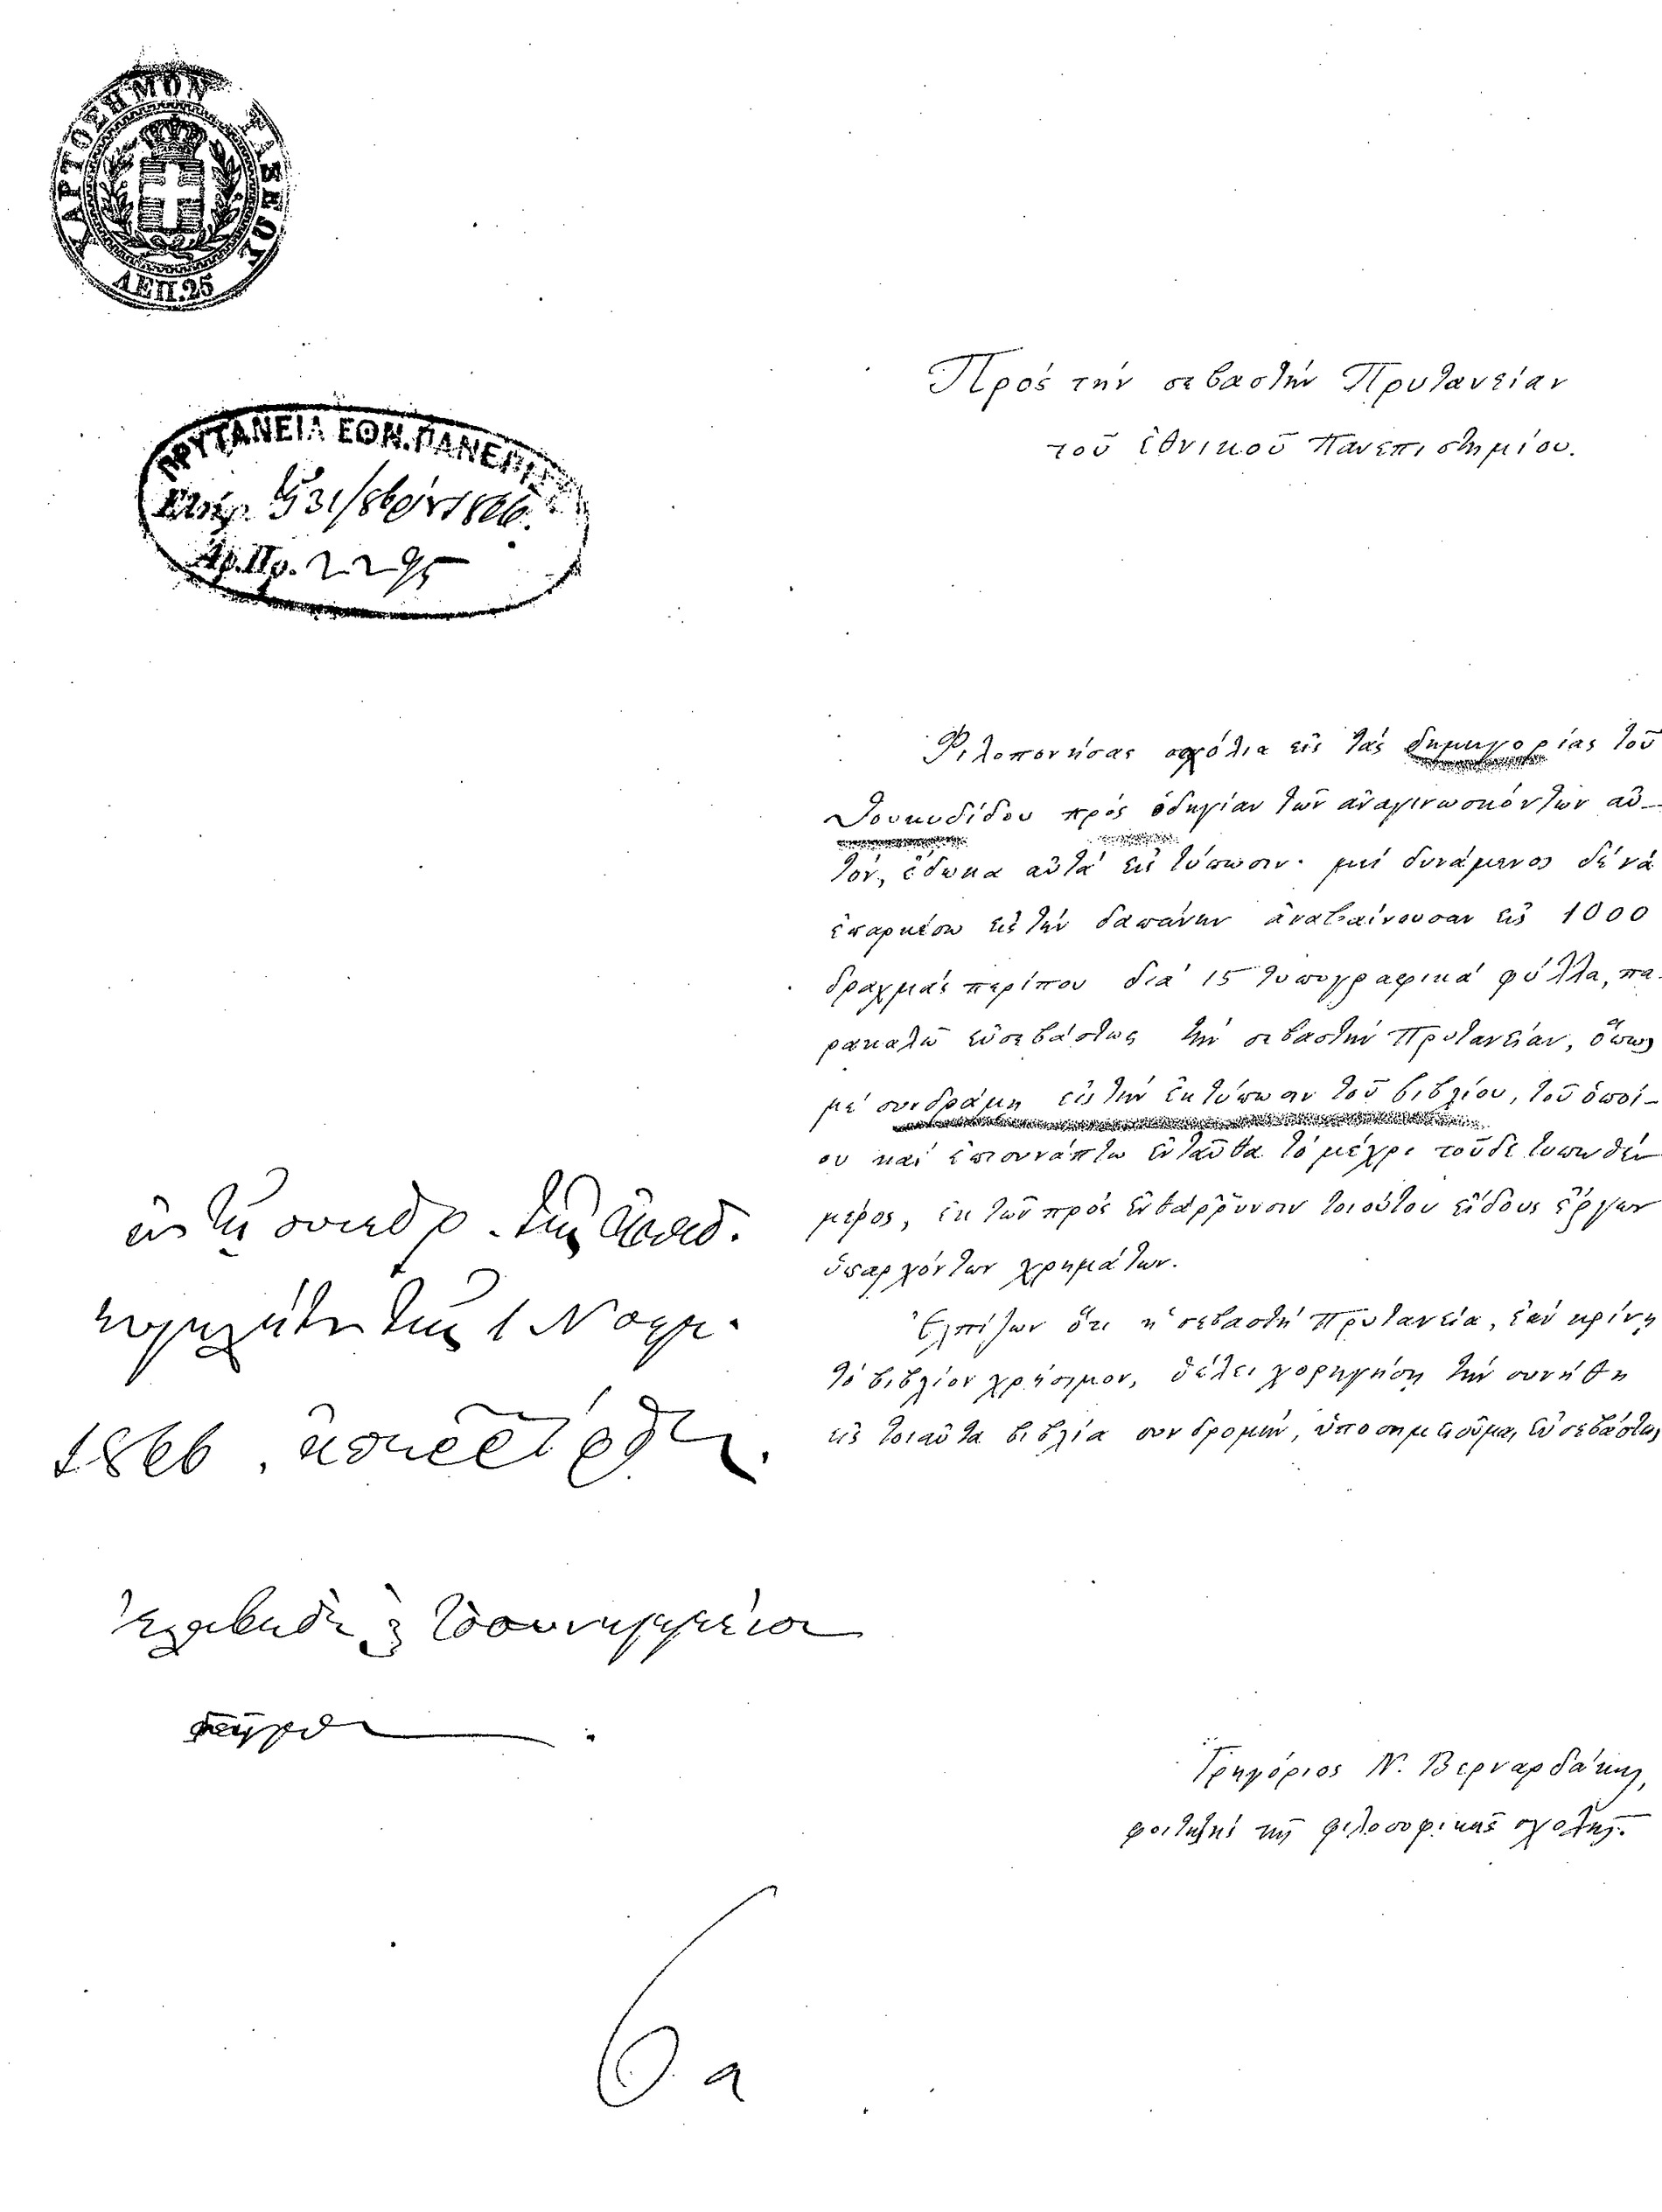 ΧΑΡΤΟΣΗΜΟΝ ΤΑΞΕΩΣ
ΛΕΠ.25
ΠΡΥΤΑΝΕΙΑ ΕΘΝ. ΠΑΝΕΠΙΣΤ
31/8βρίου 1866.
Αρ.Πρ. 2295
Πρός τήν σεβαστήν Πρυτανείαν
τοῦ ἐθνικοῦ Πανεπιστημίου.
Φιλοπονήσας σχόλια εἰς τάς δημηγορίας τοῦ
Θουκυδίδου πρός ὁδηγίαν τῶν ἀναγινωσκόντων αὐ-
τόν, ἔδωκα αὐτά εἰς τύπωσιν· μή δυνάμενος δέ νά
ἐπαρκέσω εἰς τήν δαπάνην ἀναβαίνουσαν εἰς 1000
δραχμάς περίπου διά 15 τυπογραφικά φύλλα, πα-
ρακαλῶ εὐσεβάστως τήν σεβαστήν Πρυτανείαν, ὅπως
μέ συνδράμῃ εἰς τήν ἐκτύπωσιν τοῦ βιβλίου, τοῦ ὁποί-
ου καί ἐπισυνάπτω ἐνταῦθα τό μέχρι τοῦδε τυπωθέν
μέρος, ἐκ τῶν πρός ἐνθάρρυνσιν τοιούτου εἴδους ἔργων
ὑπαρχόντων χρημάτων.
Ἐλπίζων ὅτι ἡ σεβαστή Πρυτανεία, ἐάν κρίνῃ
τό βιβλίον χρήσιμον, θέλει χορηγήσῃ τήν συνήθη
εἰς τοιαῦτα βιβλία συνδρομήν, ὑποσημειοῦμαι εὐσεβάστως
ἐν τῇ συνεδρ. τῆς
τῆς 1 Νοεμ.
1866. ἀπερρίφθη.
Γρηγόριος Ν. Βερναρδάκης,
φοιτητής τῆς φιλοσοφικῆς σχολῆς.
6 α